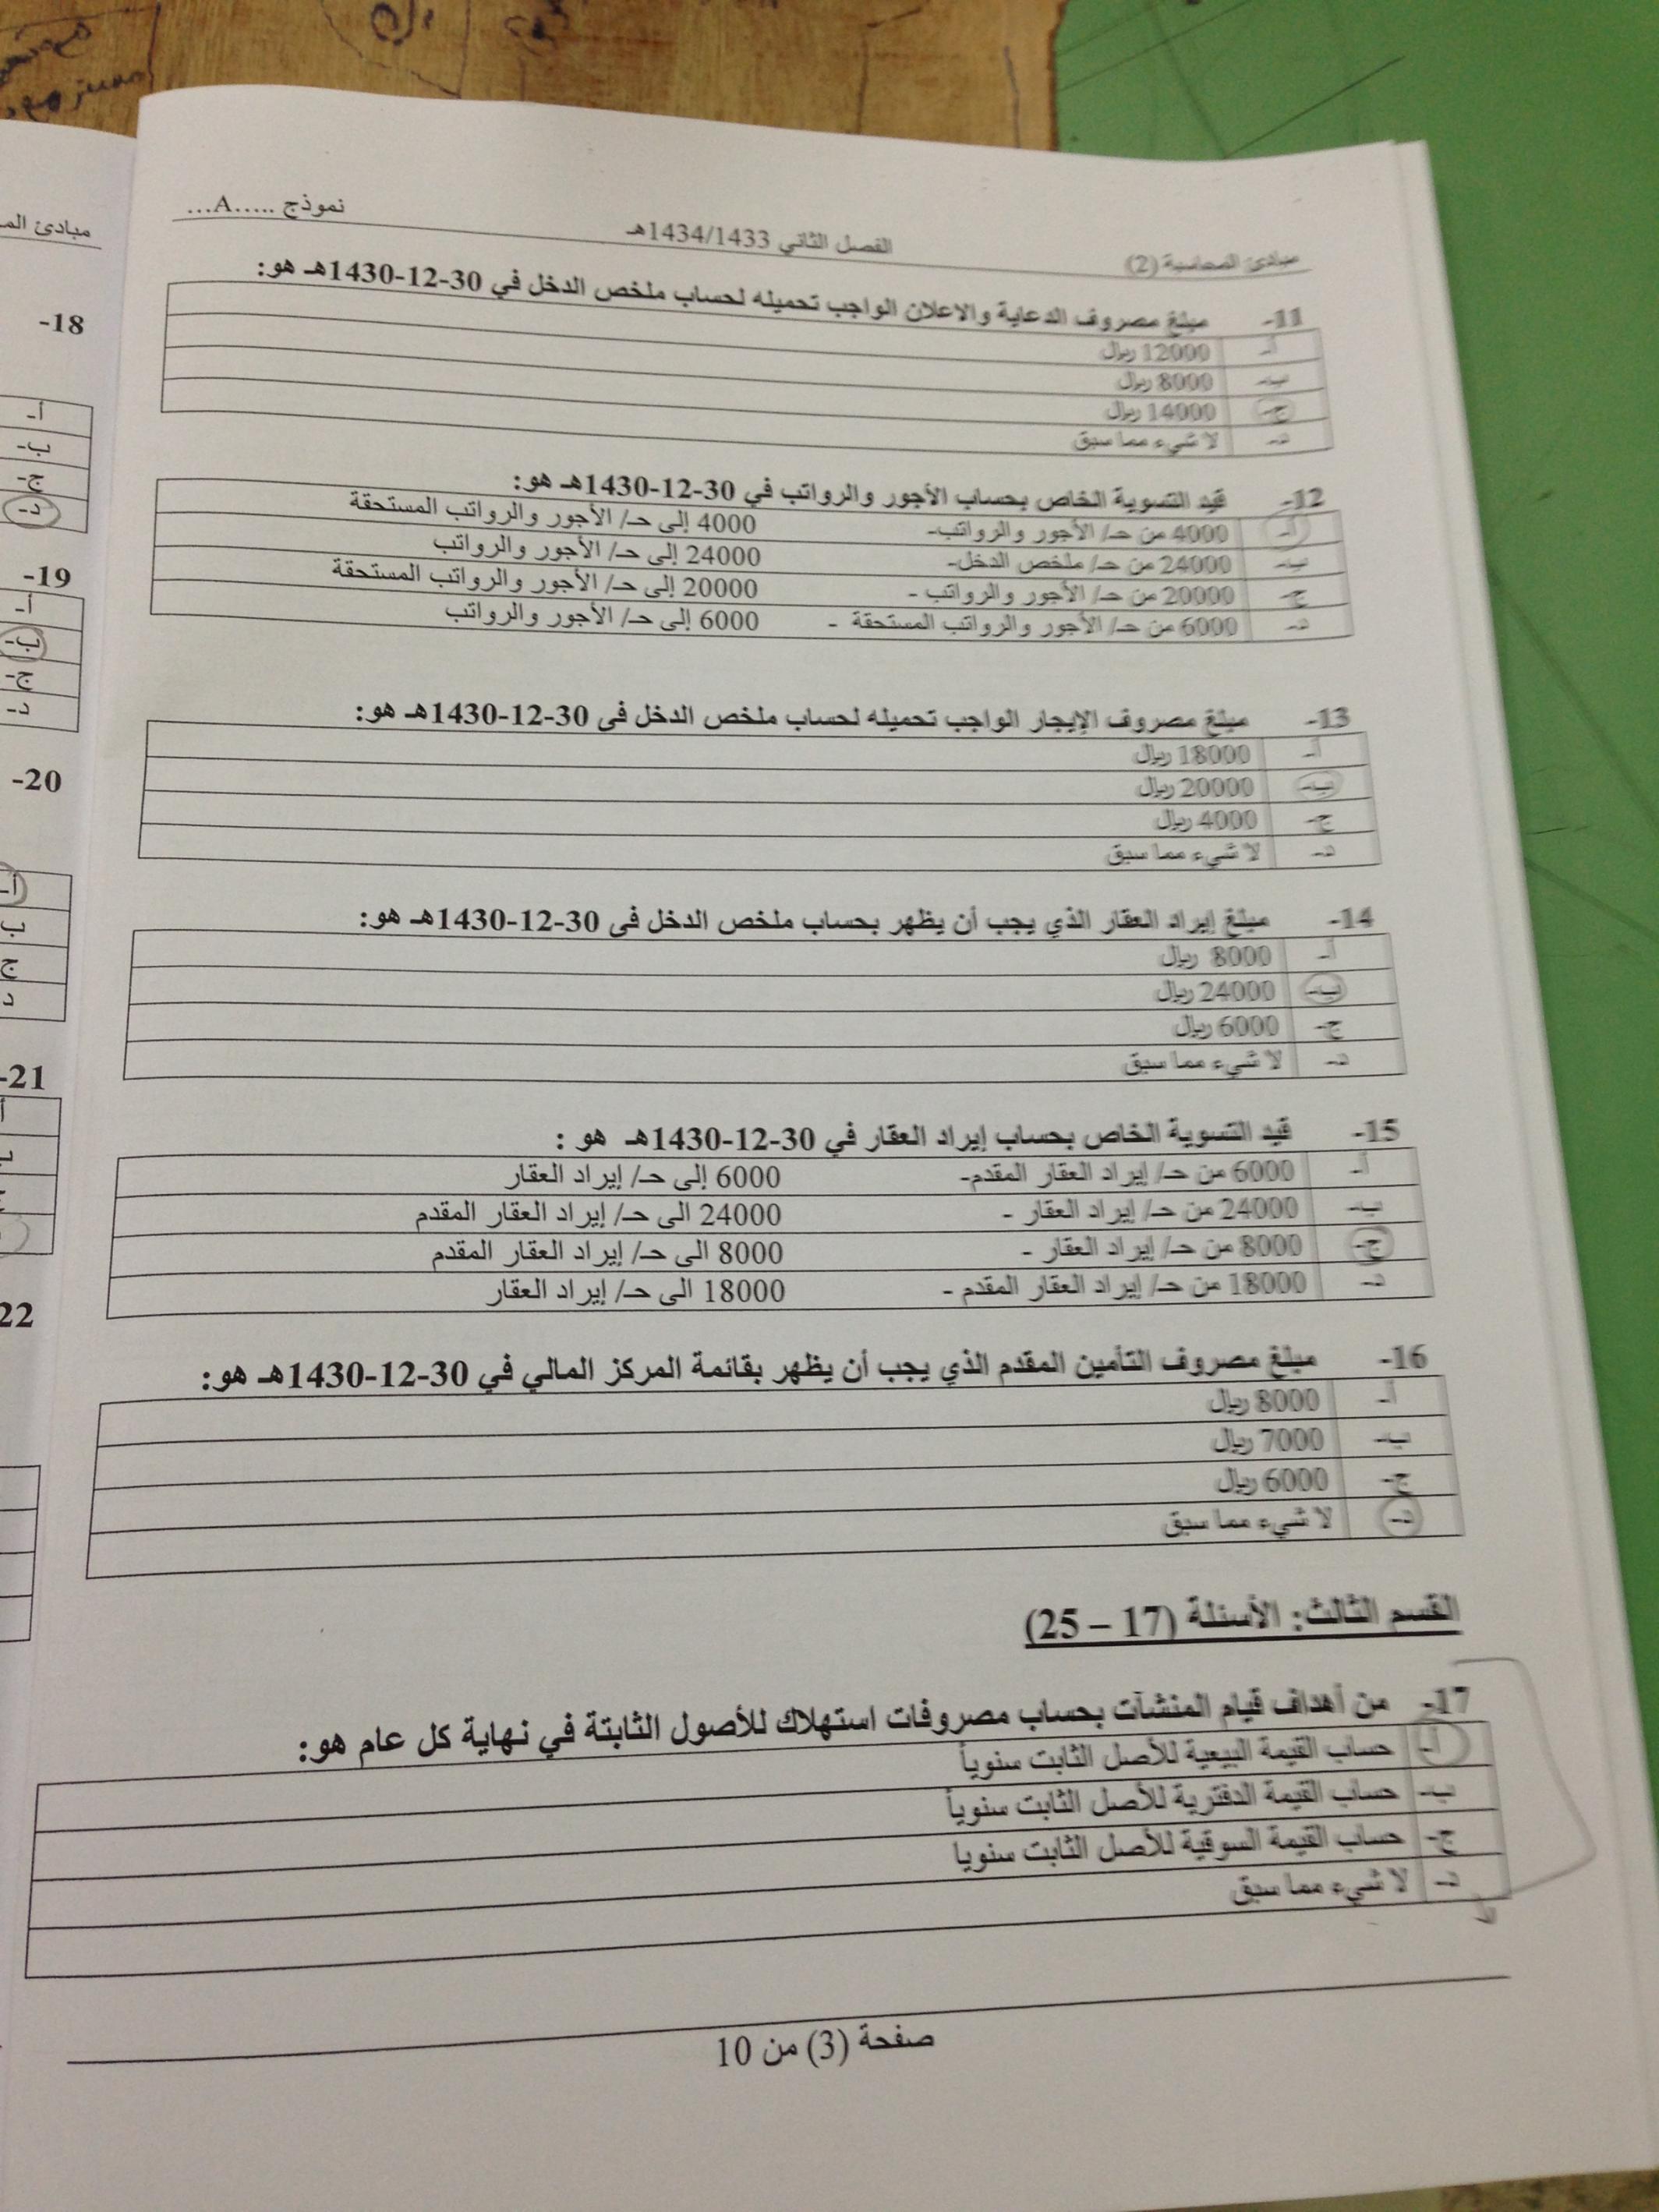 مبادئ المحاسبة (2)
الفصل الثاني 1434/1433هـ
نموذج .....A...
11- مبلغ مصروف الدعاية والاعلان الواجب تحميله لحساب ملخص الدخل في 30-12-1430هـ هو:
أ- 12000 ريال
ب- 8000 ريال
ج- 14000 ريال
د- لا شيء مما سبق
12- قيد التسوية الخاص بحساب الأجور والرواتب في 30-12-1430هـ هو:
أ- 4000 من حـ/ الأجور والرواتب- 4000 إلى حـ/ الأجور والرواتب المستحقة
ب- 24000 من حـ/ ملخص الدخل- 24000 إلى حـ/ الأجور والرواتب
ج- 20000 من حـ/ الأجور والرواتب - 20000 إلى حـ/ الأجور والرواتب المستحقة
د- 6000 من حـ/ الأجور والرواتب المستحقة - 6000 إلى حـ/ الأجور والرواتب
13- مبلغ مصروف الإيجار الواجب تحميله لحساب ملخص الدخل فى 30-12-1430هـ هو:
أ- 18000 ريال
ب- 20000 ريال
ج- 4000 ريال
د- لا شيء مما سبق
14- مبلغ إيراد العقار الذي يجب أن يظهر بحساب ملخص الدخل فى 30-12-1430هـ هو:
أ- 8000 ريال
ب- 24000 ريال
ج- 6000 ريال
د- لا شيء مما سبق
15- قيد التسوية الخاص بحساب إيراد العقار في 30-12-1430هـ هو :
أ- 6000 من حـ/ إيراد العقار المقدم- 6000 إلى حـ/ إيراد العقار
ب- 24000 من حـ/ إيراد العقار - 24000 الى حـ/ إيراد العقار المقدم
ج- 8000 من حـ/ إيراد العقار - 8000 الى حـ/ إيراد العقار المقدم
د- 18000 من حـ/ إيراد العقار المقدم - 18000 الى حـ/ إيراد العقار
16- مبلغ مصروف التأمين المقدم الذي يجب أن يظهر بقائمة المركز المالي في 30-12-1430هـ هو:
أ- 8000 ريال
ب- 7000 ريال
ج- 6000 ريال
د- لا شيء مما سبق
القسم الثالث: الأسئلة (17 – 25)
17- من أهداف قيام المنشآت بحساب مصروفات استهلاك للأصول الثابتة في نهاية كل عام هو:
أ- حساب القيمة البيعية للأصل الثابت سنوياً
ب- حساب القيمة الدفترية للأصل الثابت سنوياً
ج- حساب القيمة السوقية للأصل الثابت سنويا
د- لا شيء مما سبق
صفحة (3) من 10
مبادئ المـ
18-
أ-
ب-
ج-
د-
19-
أ-
ب-
ج-
د-
20-
أ-
ب
ج
د
21-
22